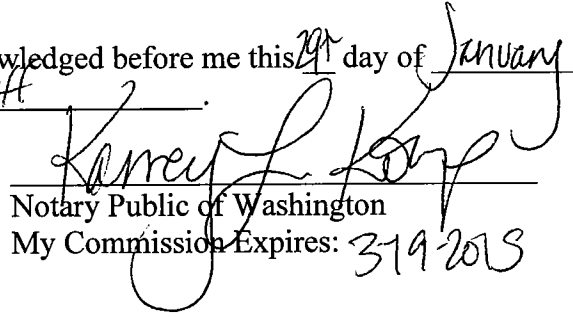 wledged before me this 29th day of January
H
L.
Notary Public of Washington
My Commission Expires: 3-19-2015